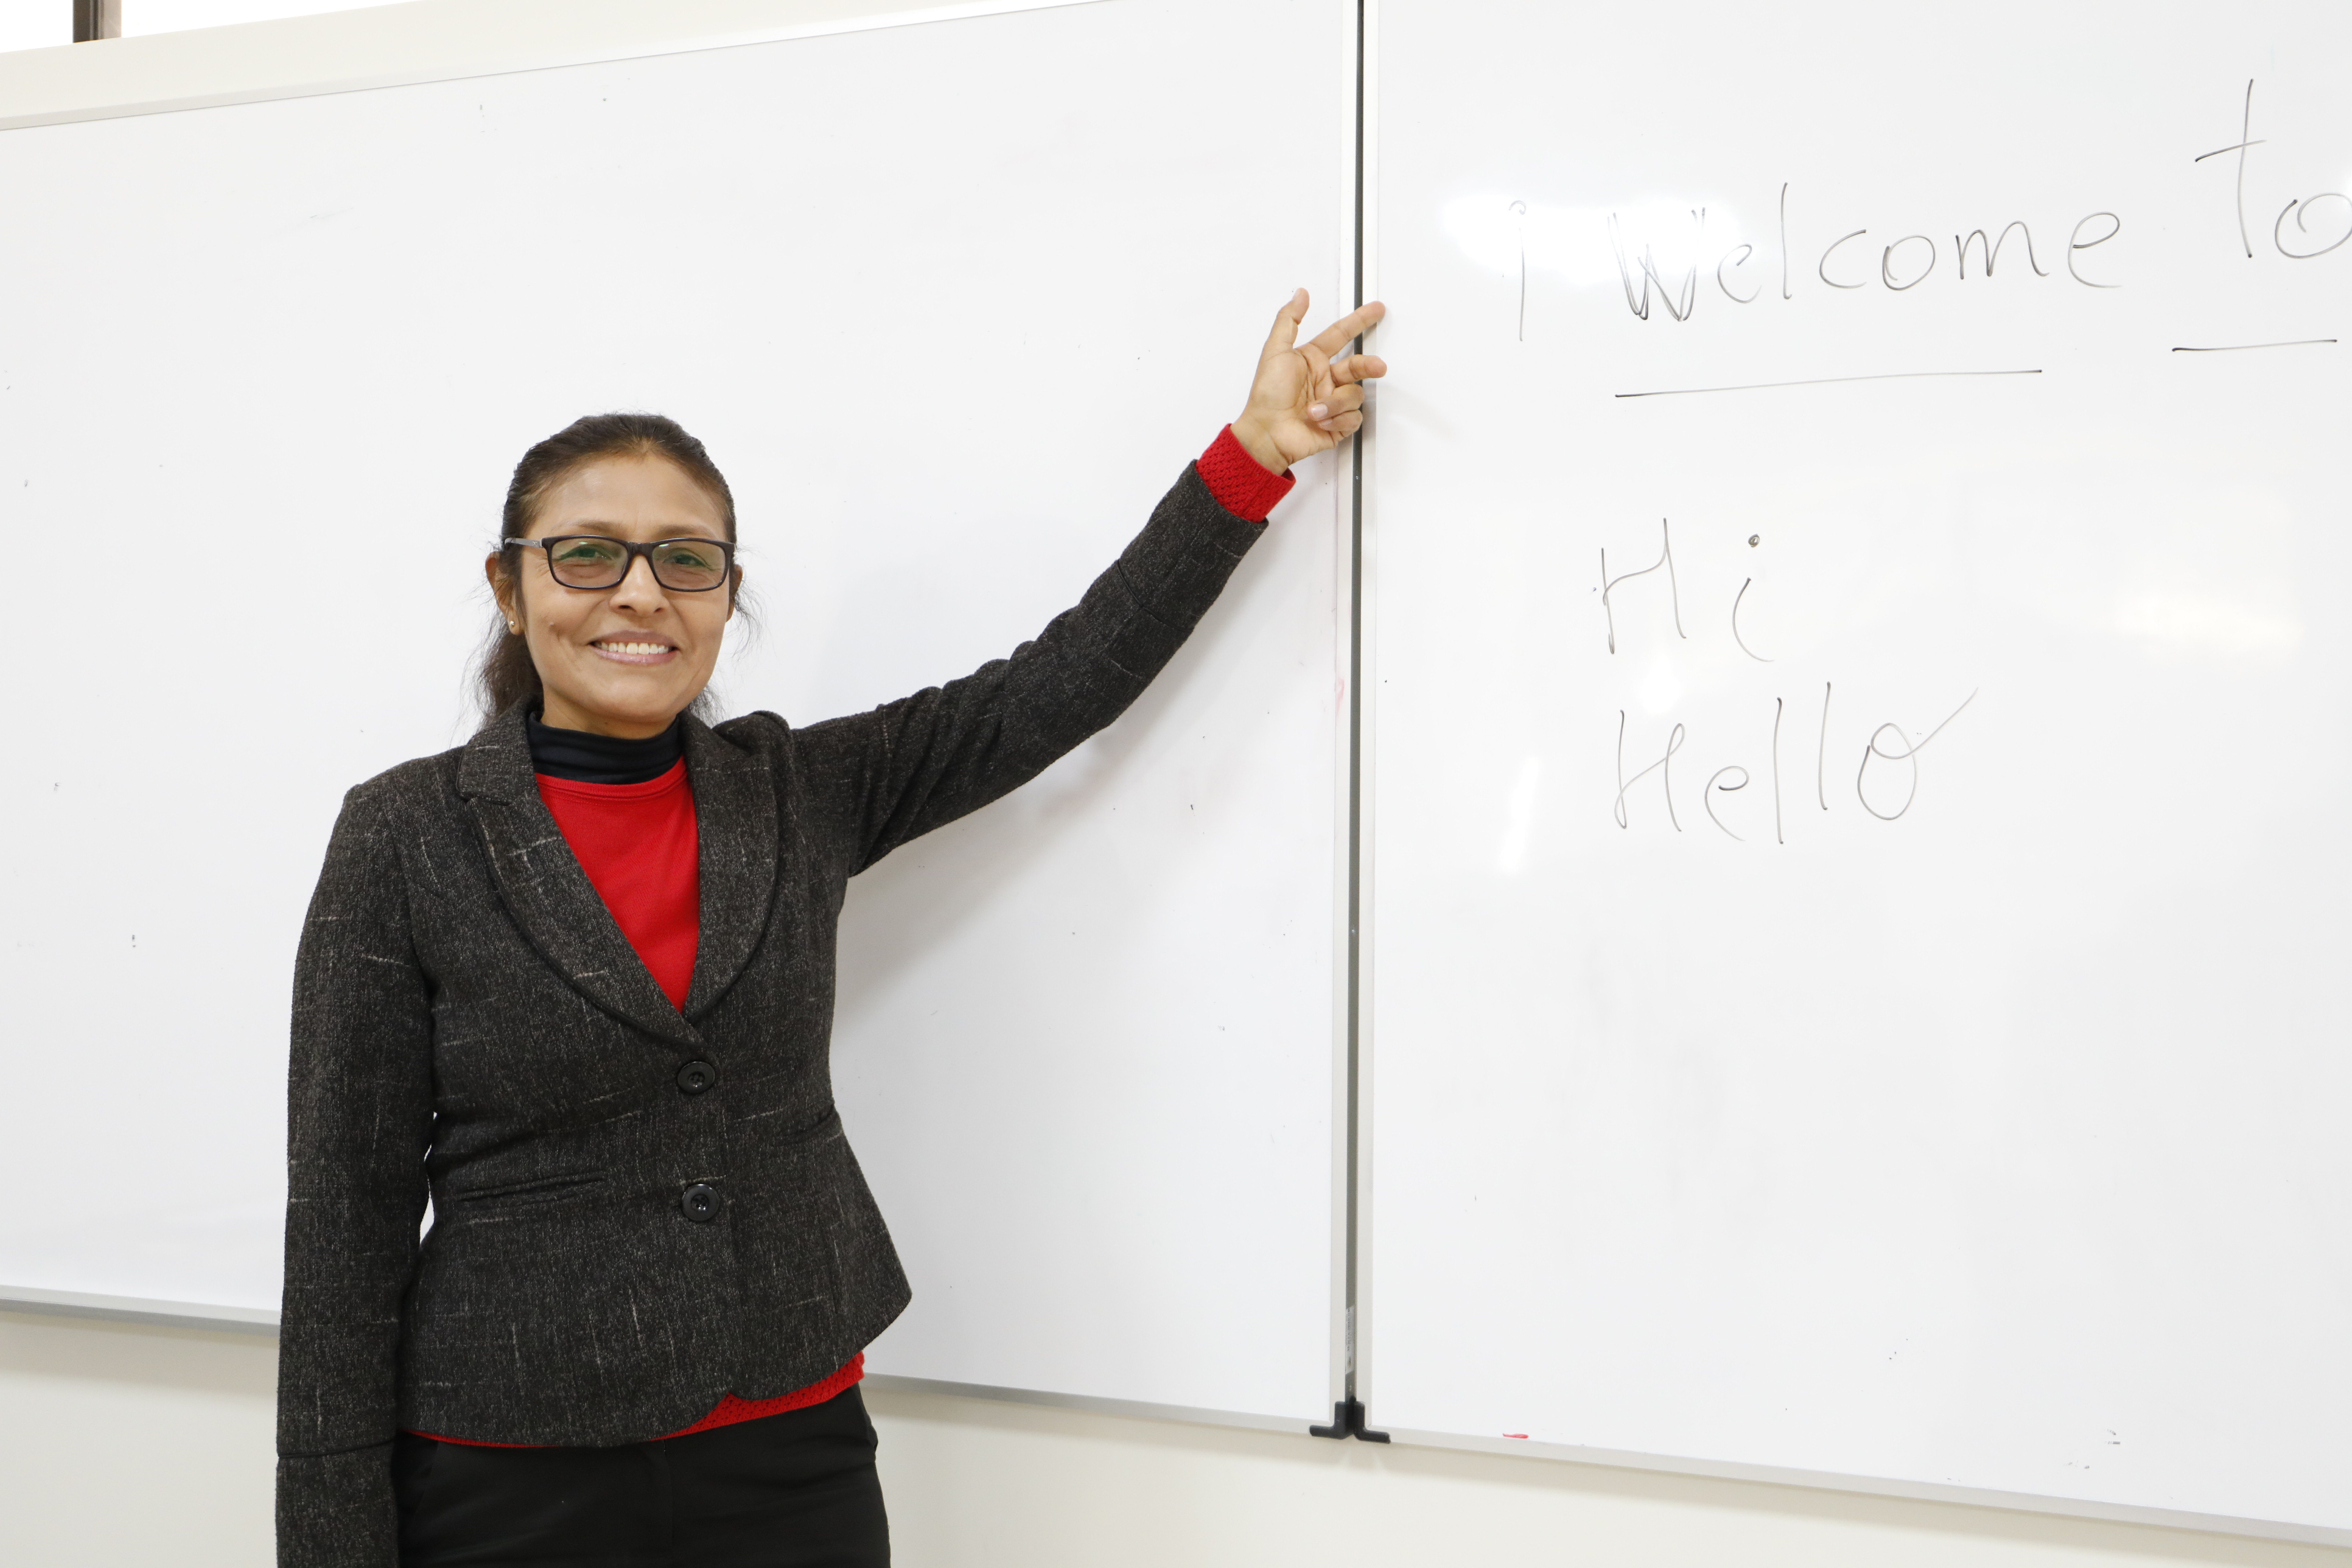 ¡ Welcome to
Hi
Hello